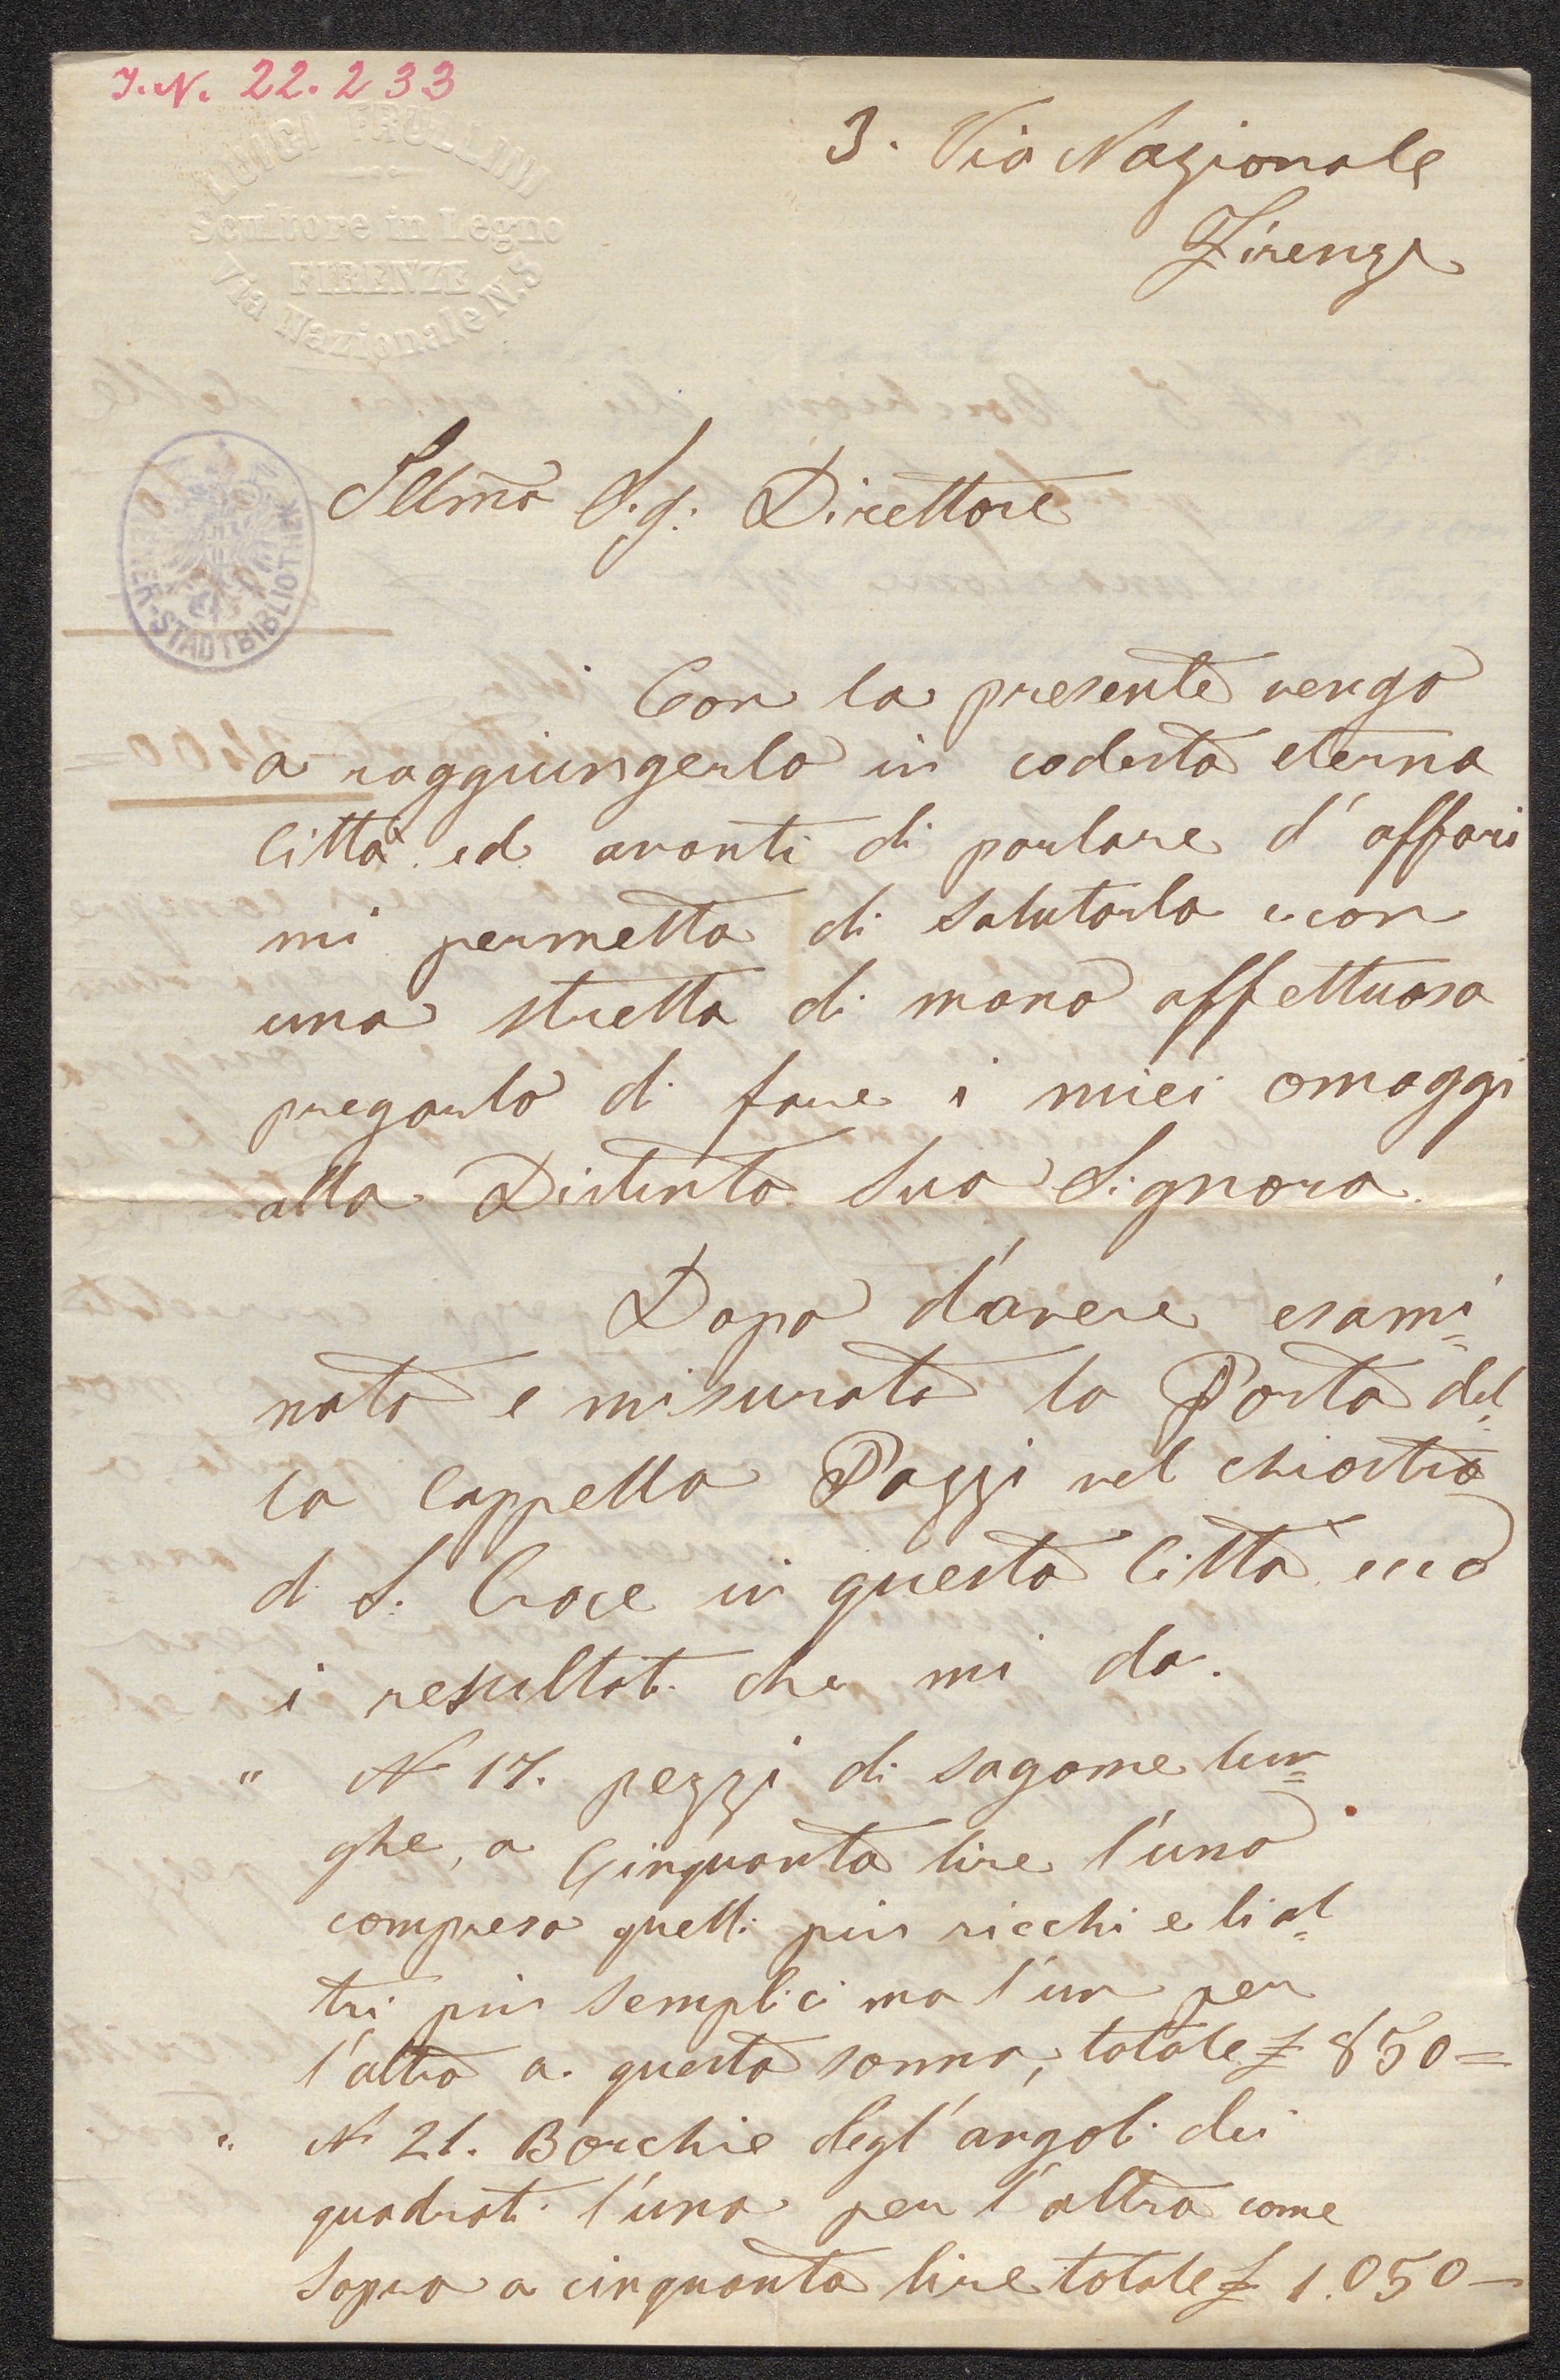 J.N. 22.233
LUIGI FRULLINI
Scultore in Legno
FIRENZE
Via Nazionale N. 3
3. Via Nazionale
Firenze
WIENER-STADTBIBLIOTHEK
Illmo Sig: Direttore
Con la presente vengo
a raggiungerlo in codesta eterna
Città ed avanti di parlare d'affari
mi permetta di salutarla e con
una stretta di mano affettuosa
pregarlo di fare i miei omaggi
alla Distinta Sua Signora.
Dopo d'avere esami=
nato e misurato la Porta del=
la Cappella Pazzi nel chiostro
di S. Croce in questa Città ecco
i resultati che mi da.
" N 17. pezzi di sagome lun=
ghe, a Cinquanta lire l'uno
compreso quelli più ricchi e li al=
tri più semplici ma l'un per
l'altro a questa somma, totale £ 850=
" N 21. Borchie degl'angoli dei
quadrati l'una per l'altra come
sopra a cinquanta lire totale £ 1.050—